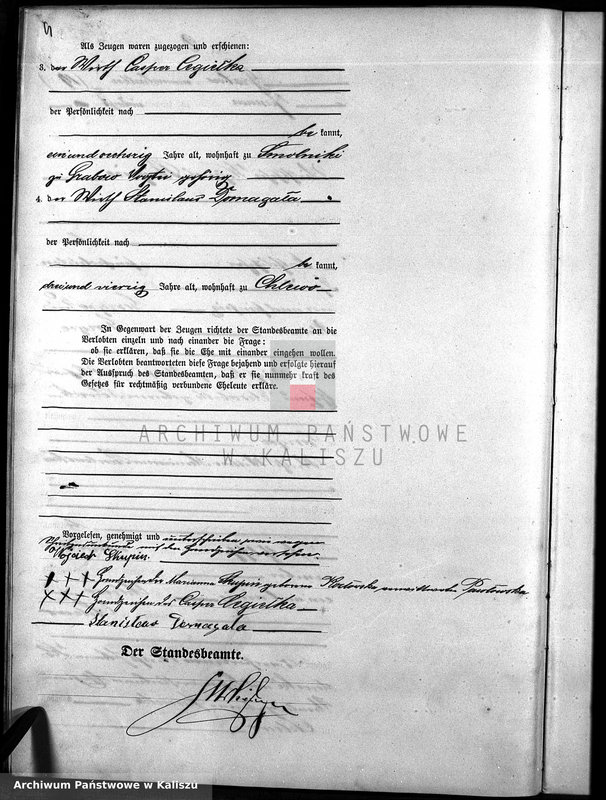 Als Zeugen waren zugezogen und erschienen:
3. der Wirth Casper Cegielka
der Persönlichkeit nach
be kannt,
ein und sechzig Jahre alt, wohnhaft zu Smolniki
zu Grabow gehörig
4. der Wirth Stanislaus Domagała
der Persönlichkeit nach
be kannt,
drei und vierzig Jahre alt, wohnhaft zu Chlewo
In Gegenwart der Zeugen richtete der Standesbeamte an die
Verlobten einzeln und nach einander die Frage:
ob sie erklären, daß sie die Ehe mit einander eingehen wollen.
Die Verlobten beantworteten diese Frage bejahend und erfolgte hierauf
der Ausspruch des Standesbeamten, daß er sie nunmehr kraft des
Gesetzes für rechtmäßig verbundene Eheleute erkläre.
ARCHIWUM PAŃSTWOWE
W KALISZU
Vorgelesen, genehmigt und unterschrieben und wegen
mit den Handzeichen versehen.
Wojciech Skupin.
+++ Handzeichen der Marianna Skupin geborene verwittwete Pawlowska
+++ Handzeichen des Casper Cegielka
Stanisław Domagala
Der Standesbeamte.
Archiwum Państwowe w Kaliszu